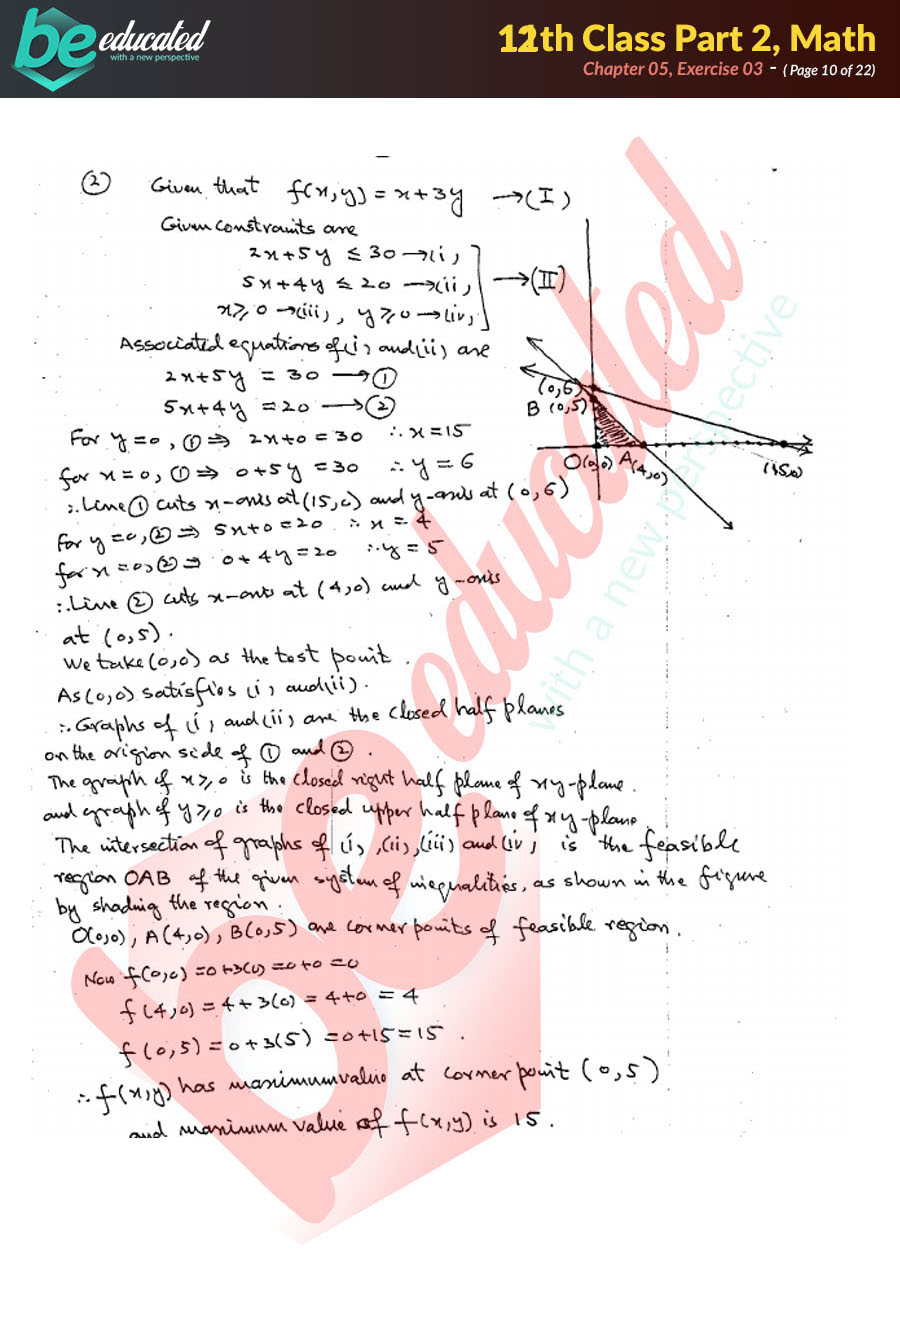 be educated
with a new perspective
12th Class Part 2, Math
Chapter 05, Exercise 03 - ( Page 10 of 22)
② Given that f(x,y) = x+3y →(I)
Given constraints are
2x+5y ≤ 30 →(i)
5x+4y ≤ 20 →(ii) →(II)
x≥0 →(iii), y≥0 →(iv)
Associated equations of (i) and (ii) are
2x+5y = 30 →①
5x+4y = 20 →②
For y=0, ①⇒ 2x+0=30 ∴x=15
for x=0, ①⇒ 0+5y=30 ∴y=6
∴Line① cuts x-axis at (15,0) and y-axis at (0,6)
For y=0,②⇒ 5x+0=20 ∴x=4
for x=0,②⇒ 0+4y=20 ∴y=5
∴Line ② cuts x-axis at (4,0) and y-axis
at (0,5).
We take (0,0) as the test point.
As (0,0) satisfies (i) and (ii).
∴Graphs of (i) and (ii) are the closed half planes
on the origion side of ① and ②.
The graph of x≥0 is the closed right half plane of xy-plane.
and graph of y≥0 is the closed upper half plane of xy-plane.
The intersection of graphs of (i), (ii), (iii) and (iv) is the feasible
region OAB of the given system of inequalities, as shown in the figure
by shading the region.
O(0,0), A(4,0), B(0,5) are corner points of feasible region.
Now f(0,0) =0+3(0) =0+0=0
f(4,0) = 4+3(0) = 4+0 = 4
f(0,5) = 0+3(5) =0+15=15.
∴f(x,y) has maximum value at corner point (0,5)
and maximum value of f(x,y) is 15.
(0,6)
B (0,5)
O(0,0) A(4,0)
(15,0)
be educated
with a new perspective